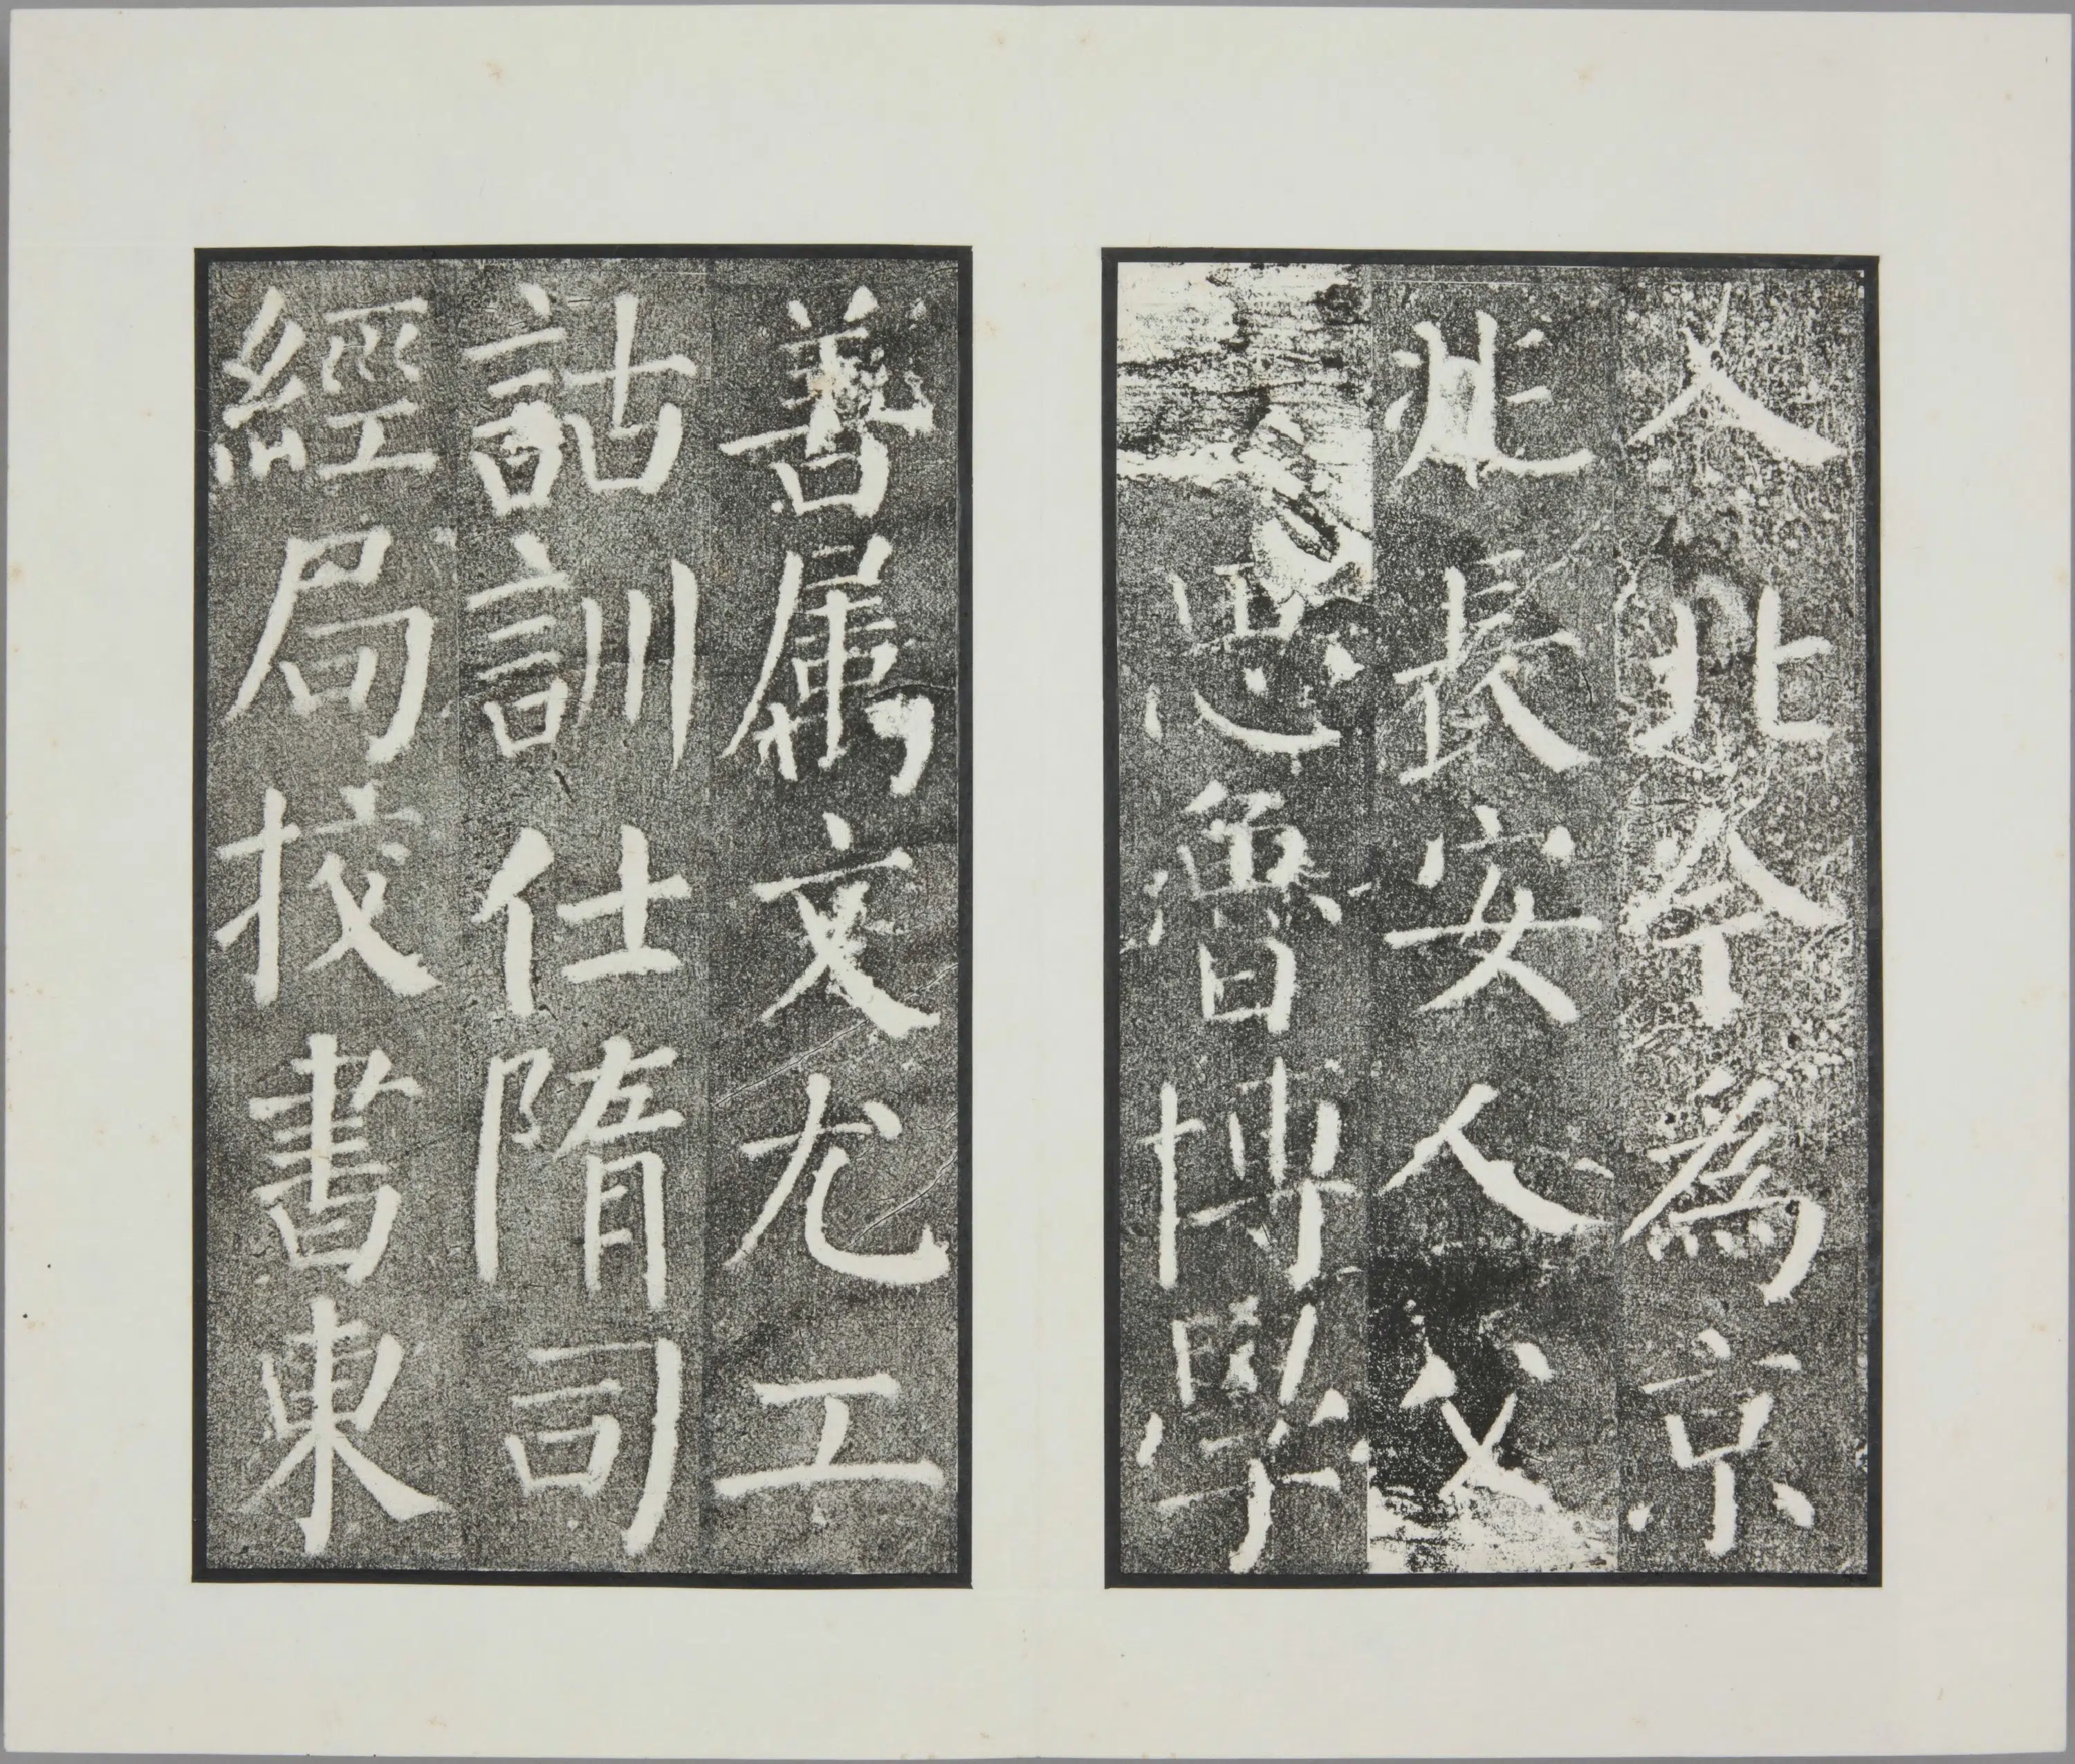 入北今為京
兆長安人父
思魯博學
善屬文尤工
詁訓仕隋司
經局挍書東